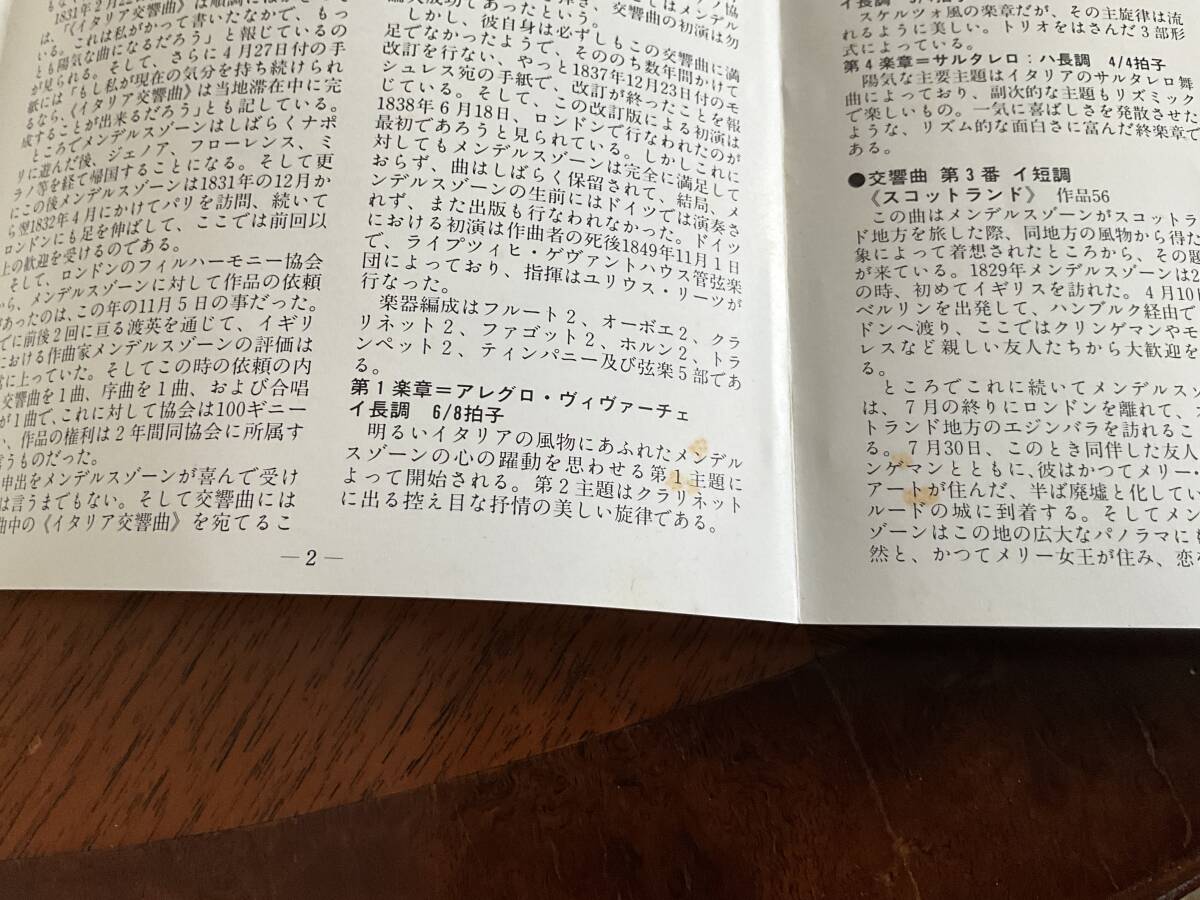 1831年2月22
は、「《イタリア交響曲》は順調に
いる。これは私がかって書いたなかで、もっ
とも陽気な曲になるだろう」と報じているの
が見られる。そして、さらに4月27日付の手
紙には「もし私が現在の気分を持ち続けられ
るなら、《イタリア交響曲》は当地滞在中に完
成することが出来るだろう」とも記している。
ところでメンデルスゾーンはしばらくナポ
リに遊んだ後、ジェノア、フローレンス、ミ
ラノ等を経て帰国することになる。そして更
にこの後メンデルスゾーンは1831年の12月か
ら翌1832年4月にかけてパリを訪問、続いて
ロンドンにも足を伸ばして、ここでは前回以
上の歓迎を受けるのである。
そして、ロンドンのフィルハーモニー協会
から、メンデルスゾーンに対して作品の依頼
があったのは、この年の11月5日の事だった。
でに前後2回に亘る渡英を通じて、イギリ
における作曲家メンデルスゾーンの評価は
常に上っていた。そしてこの時の依頼の内
交響曲を1曲、序曲を1曲、および合唱
が1曲で、これに対して協会は100ギニー
い、作品の権利は2年間同協会に所属す
言うものだった。
申出をメンデルスゾーンが喜んで受け
は言うまでもない。そして交響曲には
曲中の《イタリア交響曲》を宛てるこ
—2—
してはメンデル
、交響曲の初演は勿
論大成功であったという。
しかし、彼自身は必ずしもこの交響曲に満
足でなかったようで、そののち数年間かけて
改訂を行ない、やっと1837年12月23日付のモ
シュレス宛の手紙で、改訂が終ったことを報
じている。そして、この改訂版による初演は
1838年6月18日、ロンドンで行なわれたのが
最初であろうと見られている。しかしこれに
対してもメンデルスゾーンは完全に満足して
おらず、曲はしばらく保留されて、結局、メ
ンデルスゾーンの生前にはドイツでは演奏さ
れず、また出版も行なわれなかった。ドイツ
における初演は作曲者の死後1849年11月1日
で、ライプツィヒ・ゲヴァントハウス管弦楽
団によっており、指揮はユリウス・リーツが
行なった。
楽器編成はフルート2、オーボエ2、クラ
リネット2、ファゴット2、ホルン2、トラ
ンペット2、ティンパニー及び弦楽5部であ
る。
第1楽章=アレグロ・ヴィヴァーチェ
イ長調 6/8拍子
明るいイタリアの風物にあふれたメンデル
スゾーンの心の躍動を思わせる第1主題に
よって開始される。第2主題はクラリネット
に出る控え目な抒情の美しい旋律である。
イ長調 3/4拍子
スケルツォ風の楽章だが、その主旋律は流
れるように美しい。トリオをはさんだ3部形
式によっている。
第4楽章=サルタレロ:ハ長調 4/4拍子
陽気な主要主題はイタリアのサルタレロ舞
曲によっており、副次的な主題もリズミック
で楽しいもの。一気に喜ばしさを発散させた
ような、リズム的な面白さに富んだ終楽章で
ある。
●交響曲 第3番 イ短調
《スコットランド》 作品56
この曲はメンデルスゾーンがスコットラ
ンド地方を旅した際、同地方の風物から得た
象によって着想されたところから、その題
が来ている。1829年メンデルスゾーンは2
の時、初めてイギリスを訪れた。4月10
ベルリンを出発して、ハンブルク経由で
ドンへ渡り、ここではクリンゲマンやモ
レスなど親しい友人たちから大歓迎を
る。
ところでこれに続いてメンデルス
は、7月の終りにロンドンを離れて、
トランド地方のエジンバラを訪れるこ
る。7月30日、このとき同伴した友人
ンゲマンとともに、彼はかつてメリー・
アートが住んだ、半ば廃墟と化してい
ルードの城に到着する。そしてメン
ゾーンはこの地の広大なパノラマにも
然と、かつてメリー女王が住み、恋